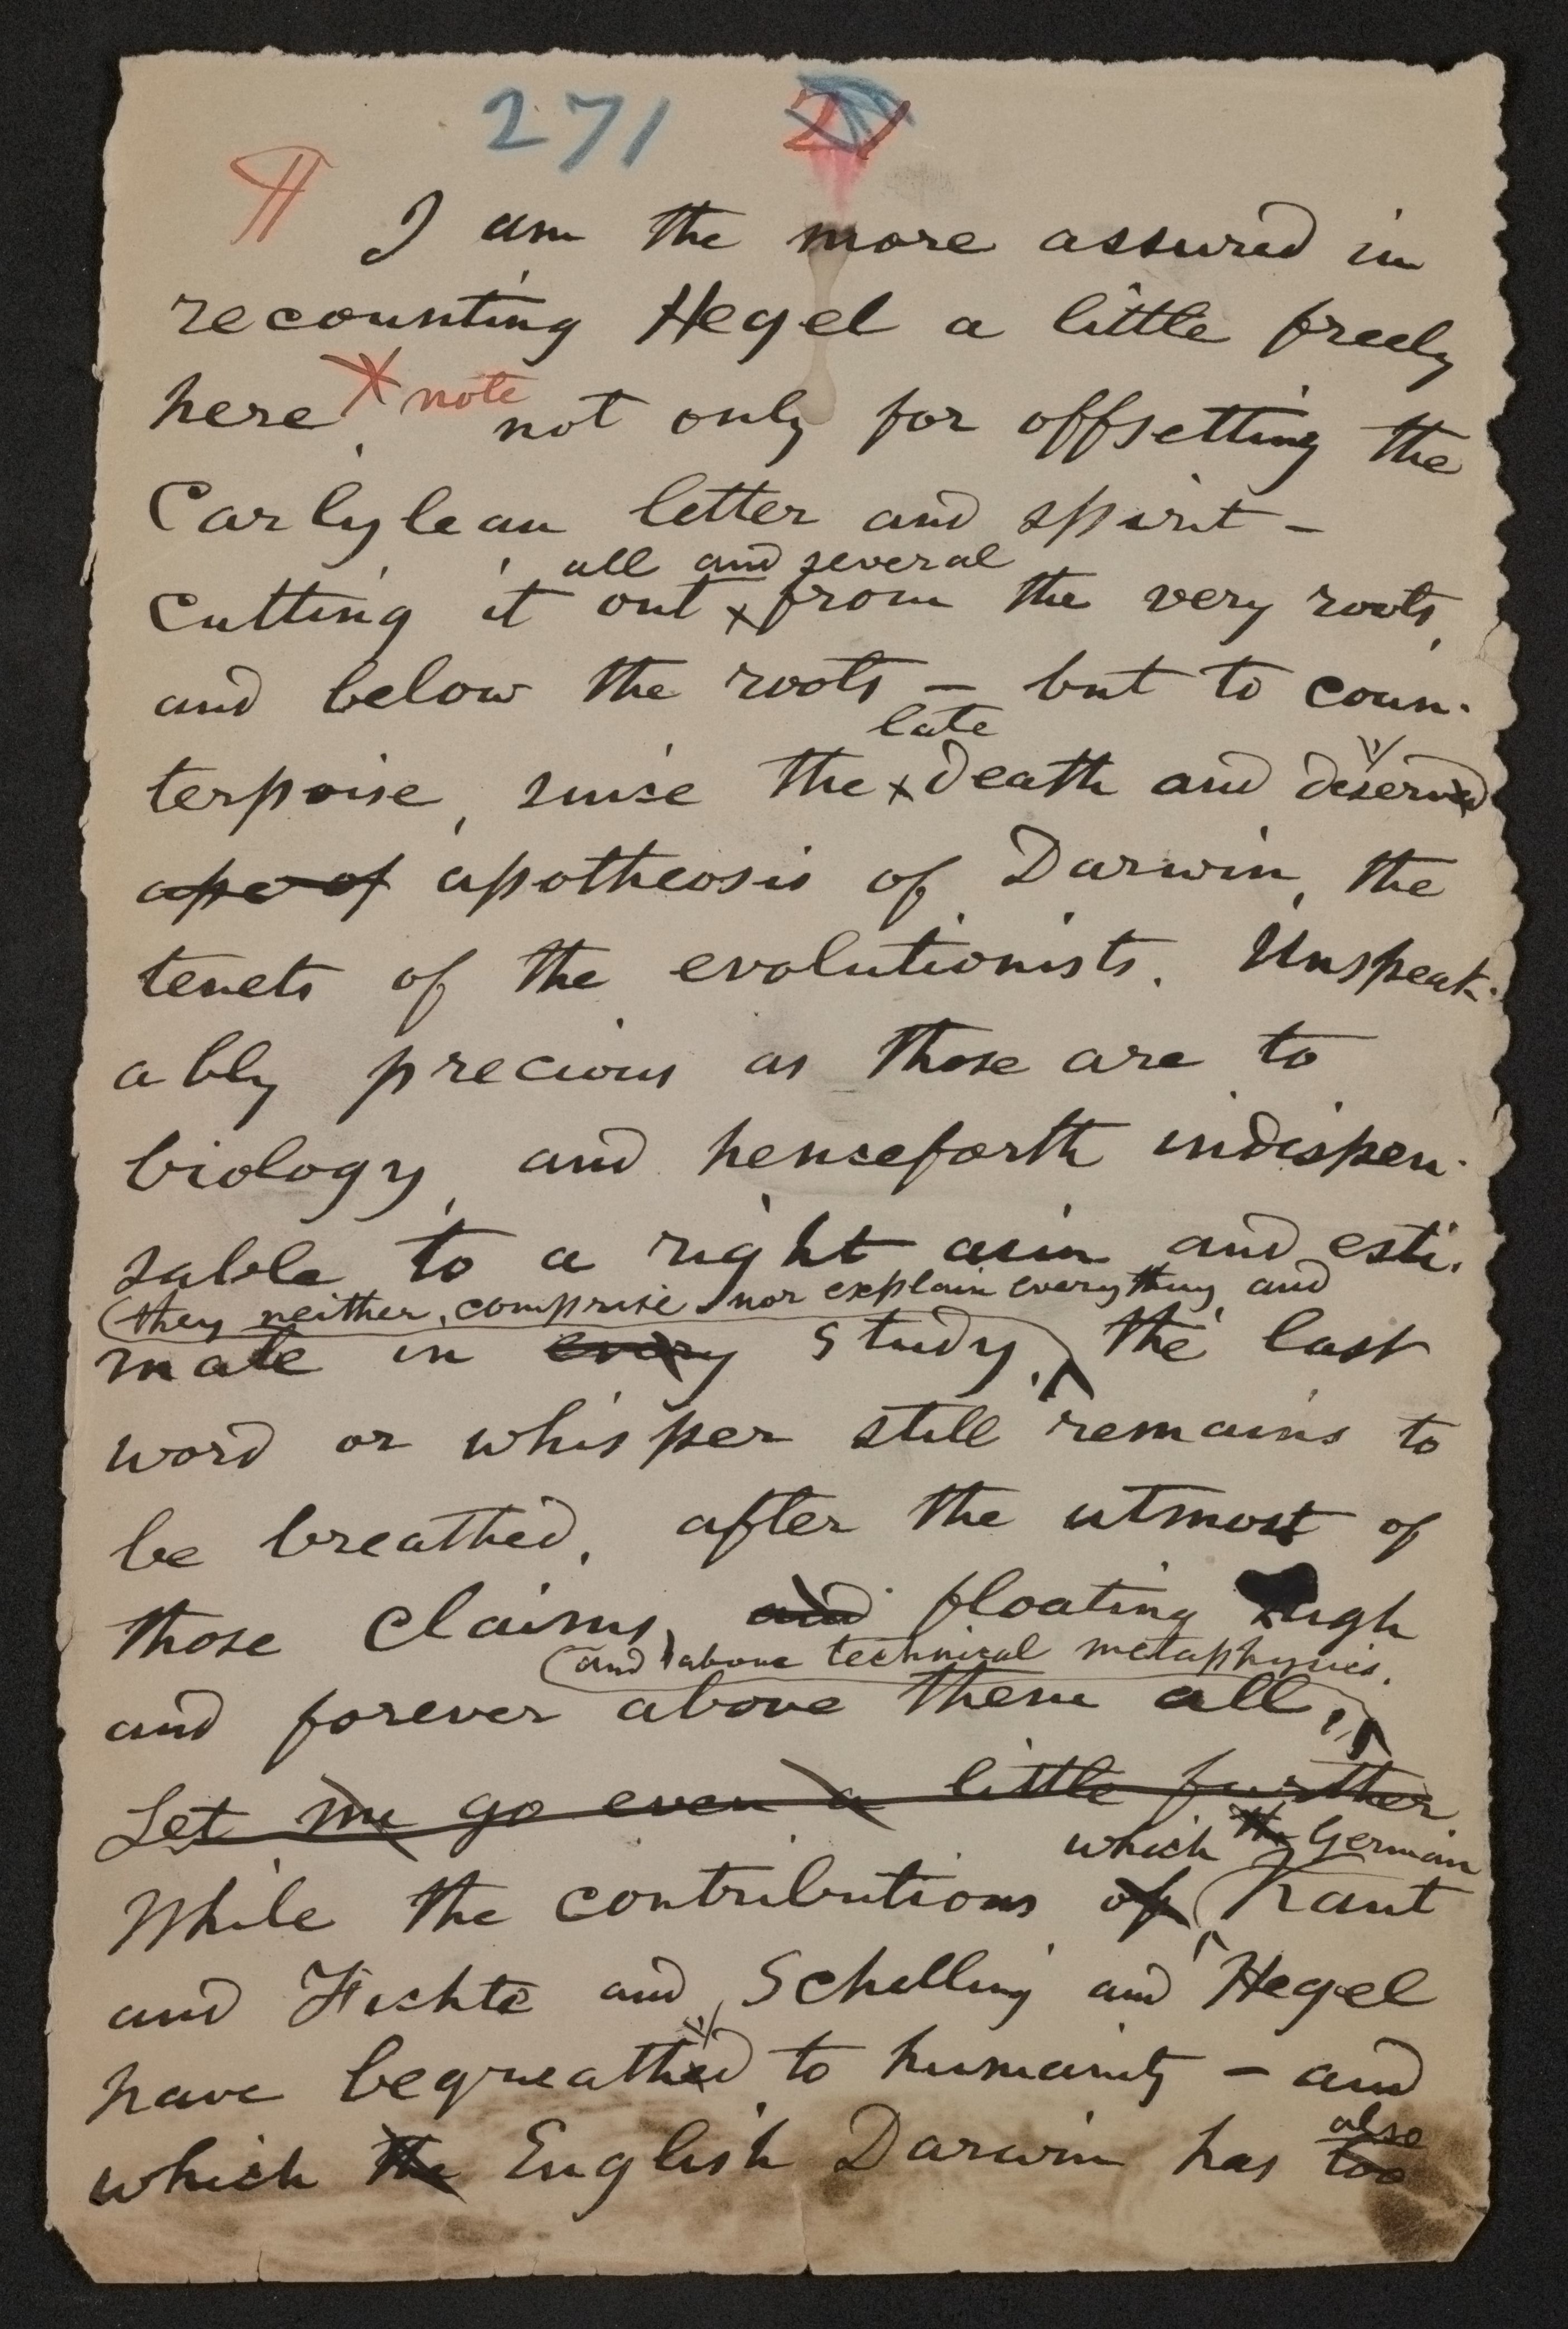 271 21
¶ I am the more assured in
recounting Hegel a little freely
here * note not only for offsetting the
Carlylean letter and spirit –
all and several
cutting it out x from the very roots,
and below the roots – but to coun-
late
terpoise, since the x death and deserv'd
ape of apotheosis of Darwin, the
tenets of the evolutionists. Unspeak-
ably precious as those are to
biology, and henceforth indispen-
sable to a right aim and esti-
(they neither comprise nor explain everything, and
mate in every study, the last
word or whisper still remains to
be breathed, after the utmost of
those claims, and floating high
(and above technical metaphysics.
and forever above them all,
Let me go even a little further.
which the German
While the contributions of Kant
and Fichte and Schelling and Hegel
have bequeath'd to humanity – and
also
which the English Darwin has too